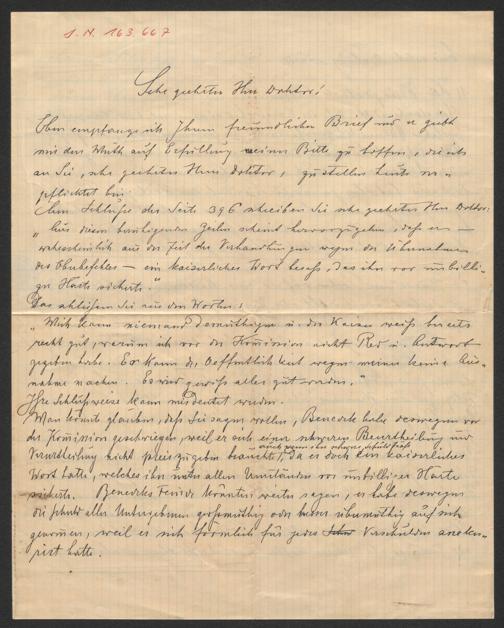 I. N. 163.667
Sehr geehrter Herr Doktor!
Eben empfange ich Ihren freundlichen Brief und er giebt
mir den Muth auf Erfüllung meiner Bitte zu hoffen, die ich
an Sie, sehr geehrter Herr Doktor, zu stellen heute ver=
pflichtet bin.
Am Schlusse der Seite 396 schreiben Sie sehr geehrter Herr Doktor:
„Aus diesen beruhigenden Zeilen scheint hervorzugehen, daß er —
wahrscheinlich aus der Zeit der Verhandlungen wegen der Übernahme
des Oberbefehles — ein kaiserliches Wort besaß, das ihn vor unbilli=
ger Härte sicherte."
Das schließen Sie aus den Worten:
„Mich kann niemand demüthigen u. der Kaiser weiß bereits
recht gut, warum ich vor der Komission nicht Red u. Antwort
gegeben habe. Es kann die Oeffentlichkeit wegen meiner keine Aus=
nahme machen. Es wird gewiß alles gut werden."
Ihre Schlußweise kann misdeutet werden.
Man könnte glauben, daß Sie sagen wollen, Benedek habe deswegen vor
der Komission geschwiegen, weil er sich einer schweren Beurtheilung und
Verurtheilung nicht preiszugeben brauchte, da er doch ein kaiserliches
Wort hatte, welches ihn unter allen Umständen vor unbilliger Härte
sicherte. Benedeks Feinde könnten weiter sagen, er habe deswegen
die Schuld aller Untergebenen großmüthig oder übermüthig auf sich
genommen, weil er sich förmlich für jedes Verschulden asseku=
riert hatte.